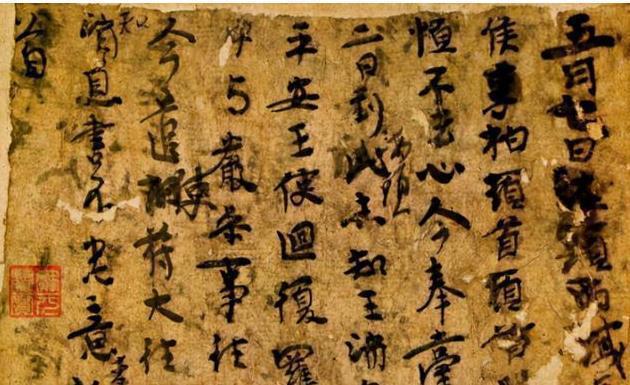 五月七日海頭西域
侯李柏頓首頓首
恒不去心今奉臺
二日到此海頭未知王消
平安王使迴復羅
与嚴參事往
今遣使苻大往
知消息書不悉意李
首